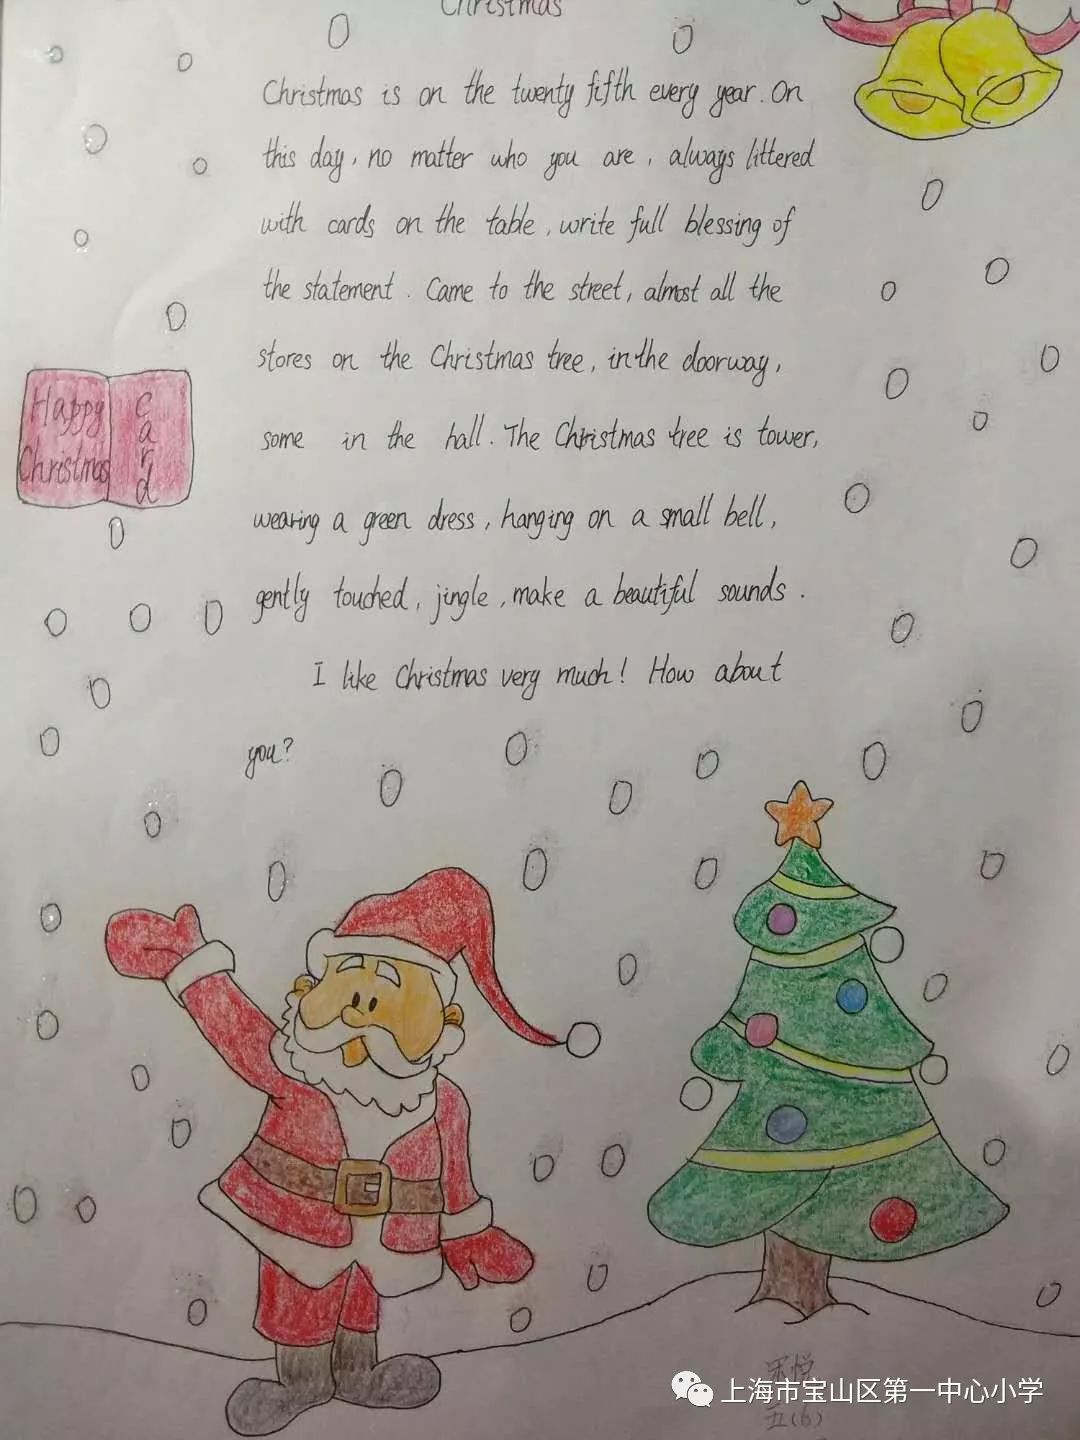 Christmas
Christmas is on the twenty fifth every year. On
this day, no matter who you are, always littered
with cards on the table, write full blessing of
the statement. Came to the street, almost all the
stores on the Christmas tree, in the doorway,
some in the hall. The Christmas tree is tower,
wearing a green dress, hanging on a small bell,
gently touched, jingle, make a beautiful sounds.
I like Christmas very much! How about
you?
Happy
Christmas
Card
上海市宝山区第一中心小学
五(6)